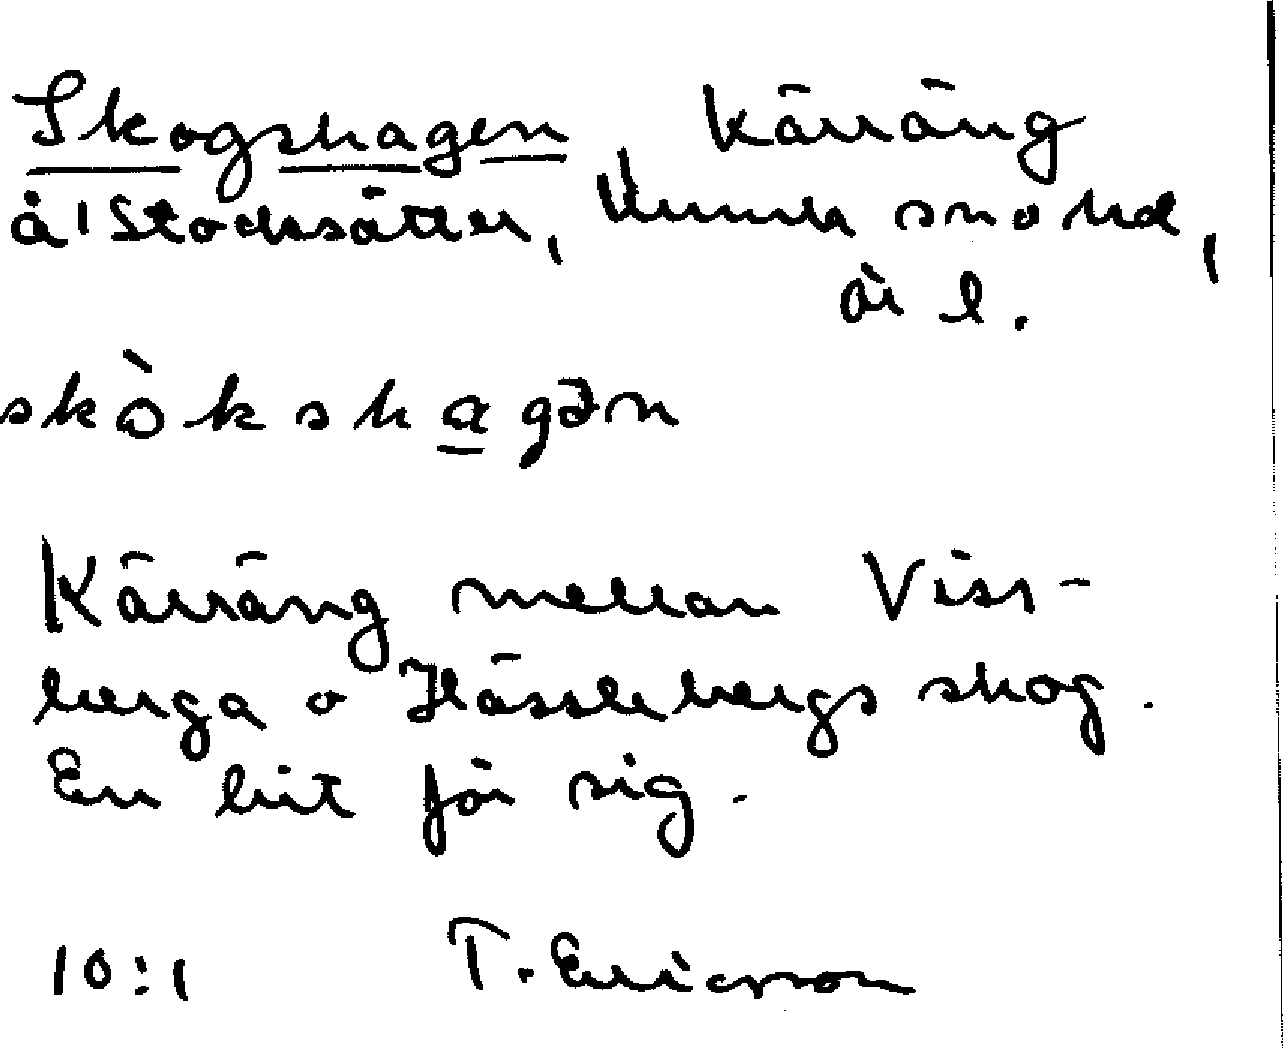 Skogshagen Käräng
å Stocksätter, Kumla snöhd,
Ör l.
skòkshagən
Käräng mellan Viss-
berga o Hässlebergs skog.
En bit för sig.
10:1 T. Ericsson